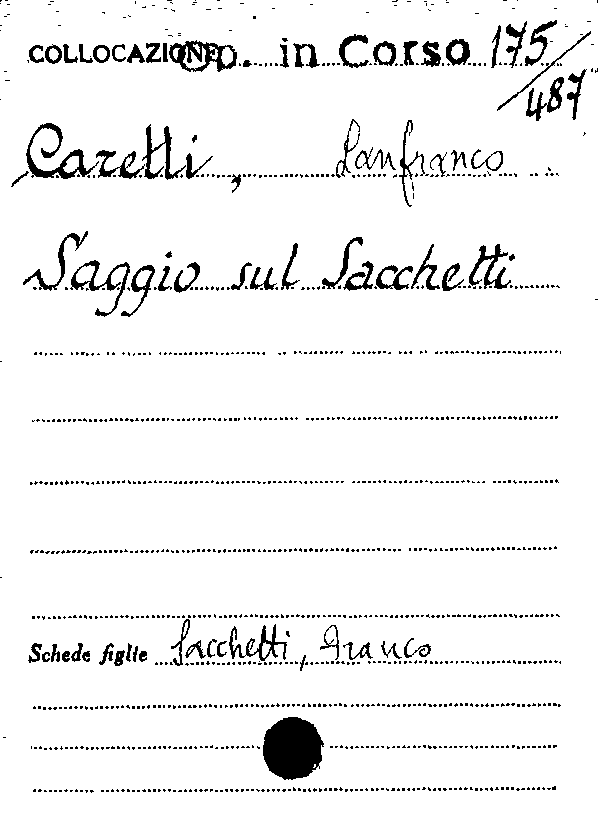 COLLOCAZIONE Op. in Corso 175/487
Caretti, Lanfranco
Saggio sul Sacchetti
Schede figlie Sacchetti, Franco